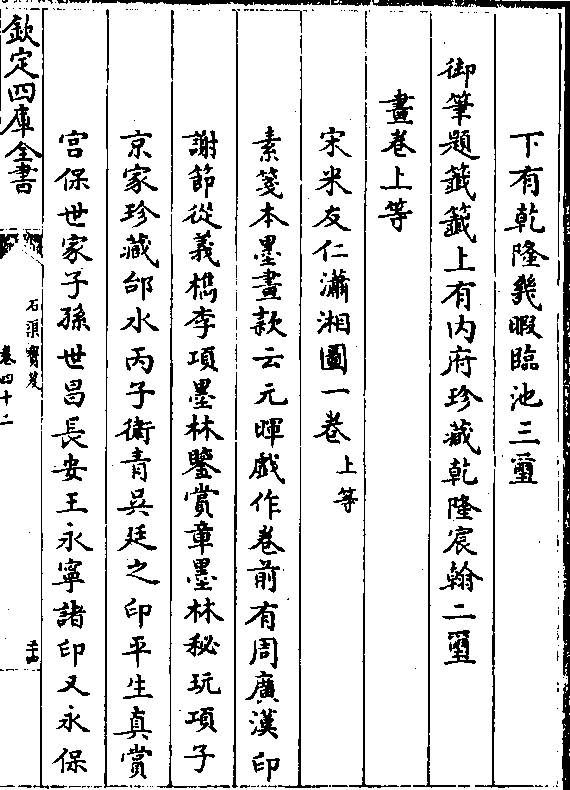 下有乾隆幾暇臨池三璽
御筆題籤籤上有内府珍藏乾隆宸翰二璽
畫卷上等
宋米友仁瀟湘圖一卷上等
素箋本墨畫款云元暉戲作卷前有周廣漢印
謝節從義檇李項墨林鑒賞章墨林秘玩項子
京家珍藏邰水丙子衛青吳廷之印平生真賞
宫保世家子孫世昌長安王永寧諸印又永保
欽定四庫全書
石渠寶笈
卷四十二